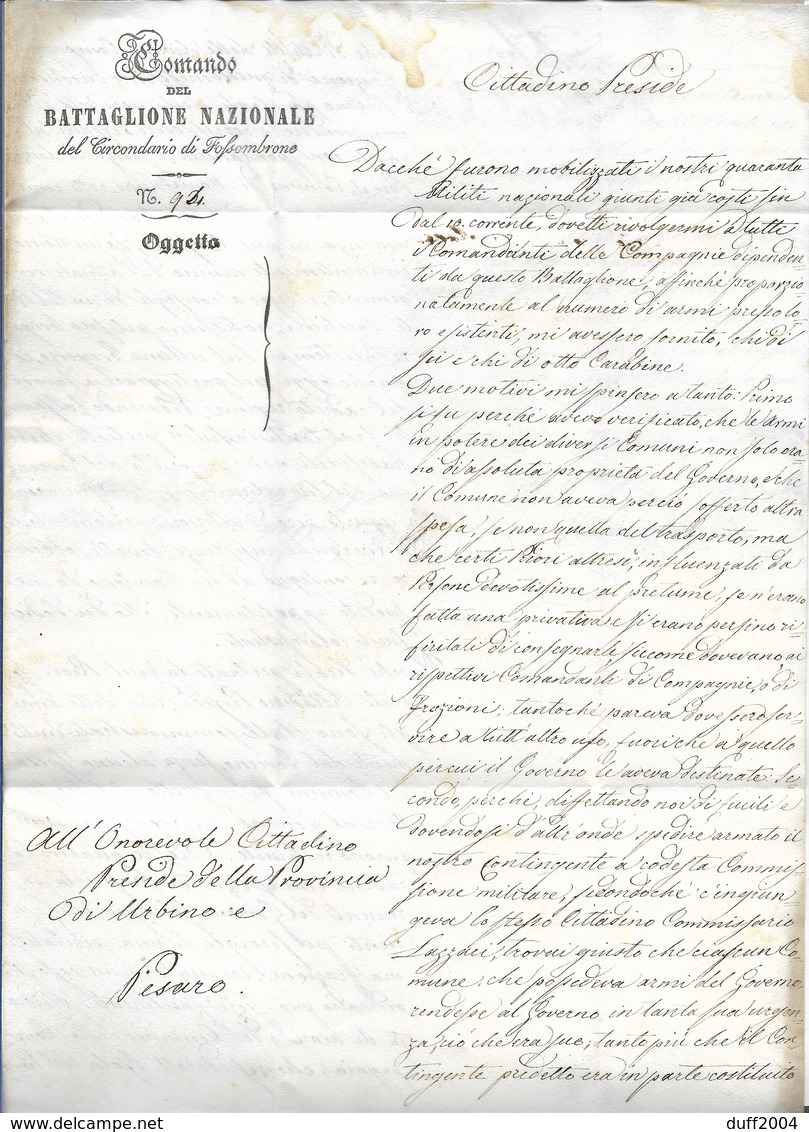 Comando
DEL
BATTAGLIONE NAZIONALE
del Circondario di Fossombrone
N. 94.
Oggetto
Cittadino Preside
Dacché furono mobilizzati i nostri quaranta
Militi nazionali giunti già costì sin
dal 10. corrente, dovetti rivolgermi a tutti
i Comandanti delle Compagnie dipenden-
ti da questo Battaglione, affinché proporzio-
natamente al numero di armi presso lo-
ro esistenti, mi avessero fornito, chi di
sei e chi di otto Carabine.
Due motivi mi spinsero a tanto: Primo
si fu perché avevo verificato, che le armi
in potere dei diversi Comuni non solo era-
no di assoluta proprietà del Governo, e che
il Comune non aveva perciò sofferto altra
spesa, se non quella del trasporto, ma
che certi Priori altresì, influenzati da
Persone devotissime al pretume, se n'erano
fatta una privativa e si erano persino ri-
fiutati di consegnarle siccome dovevano ai
rispettivi Comandanti di Compagnie, o di
Frazioni; tantoché pareva dovessero ser-
vire a tutt'altro uso, fuori che a quello
per cui il Governo le aveva destinate: Se-
condo, perché, diffettando noi di fucili e
dovendosi d'altr'onde spedire armato il
nostro Contingente a codesta Commis-
sione militare, secondoché c'ingiun-
geva lo stesso Cittadino Commissario
trovai giusto che ciascun Co-
mune, che possedeva armi del Governo
rendesse al Governo in tanta sua urgen-
za, ciò che era suo; tanto più che il Con-
tingente predetto era in parte costituito
All' Onorevole Cittadino
Preside della Provincia
di Urbino e
Pesaro.
duff2004